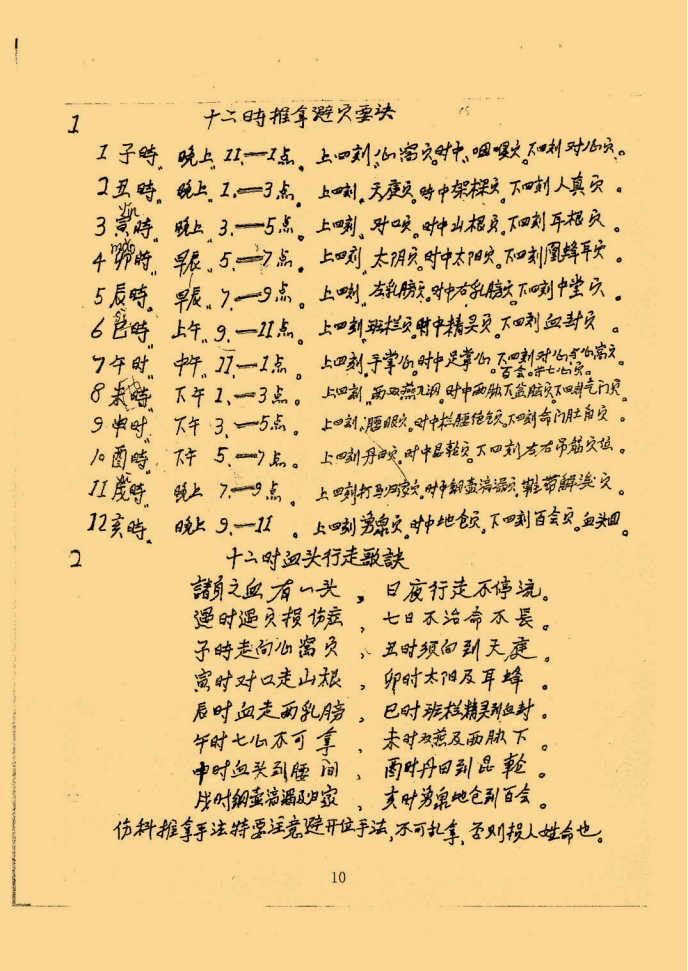 1 十二时推拿避穴要诀
1 子時 晚上 11.—1点. 上四刻心窝穴.时中.咽喉穴.下四刻对心穴。
2 丑時. 晚上. 1.—3点. 上四刻.天庭穴.時中架樑穴.下四刻人真穴。
yin
3 寅時 晚上 3.—5点. 上四刻.对口穴.时中山根穴.下四刻耳根穴。
mǎo
4 卯時 早辰. 5.—7点. 上四刻 太阴穴.时中太阳穴.下四刻凰蜂耳穴.
5 辰時. 早辰. 7.—9点. 上四刻.左乳膀穴.时中右乳膀穴.下四刻中堂穴。
6 巳時 上午. 9.—11点. 上四刻班栏穴.時中精灵穴.下四刻血封穴。
7 午时 中午. 11.—1点. 上四刻.手掌心.时中足掌心.下四刻对心窝穴.
百会.共七心穴.
8 未時 下午 1.—3点. 上四刻.两双燕入洞.时中两肋下盆胘穴.下四刻气门穴.
9 申时 下午 3.—5点. 上四刻.腰眼穴.时中拦腰穴.下四刻命门肚角穴.
10 酉時. 下午 5.—7点. 上四刻丹田穴.时中昆乾穴.下四刻左右吊筋穴位.
11 戌時 晚上 7.—9点. 上四刻打马归家穴.时中铜壶滴漏穴.鞋带解溪穴.
12 亥時. 晚上 9.—11. 上四刻勇泉穴.时中地仓穴.下四刻百会穴.血头回.
2 十二时血头行走歌訣
諸員之血有一头，日夜行走不停流。
遇时遇穴損伤症，七日不治命不長。
子時走向心窝穴、丑时须向到天庭。
寅时对口走山根，卯时太阳及耳蜂。
辰时血走两乳膀，巳时班栏精灵到血封.
午时七心不可拿，未时双燕及两肋下。
申时血头到腰间，酉时丹田到昆乾。
戌时銅壶滴漏及归家，亥时勇泉地仓到百会。
伤科推拿手法特要注意避开位手法,不可乱拿,否则损人姓命也。
10